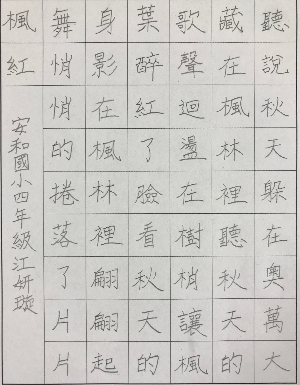 聽說秋天躲在奧萬大
藏在楓林裡聽秋天的
歌聲迴盪在樹梢讓楓
葉醉紅了臉看秋天的
身影在楓林裡翩翩起
舞悄悄的捲落了片片
楓紅
安和國小四年級江妍璇